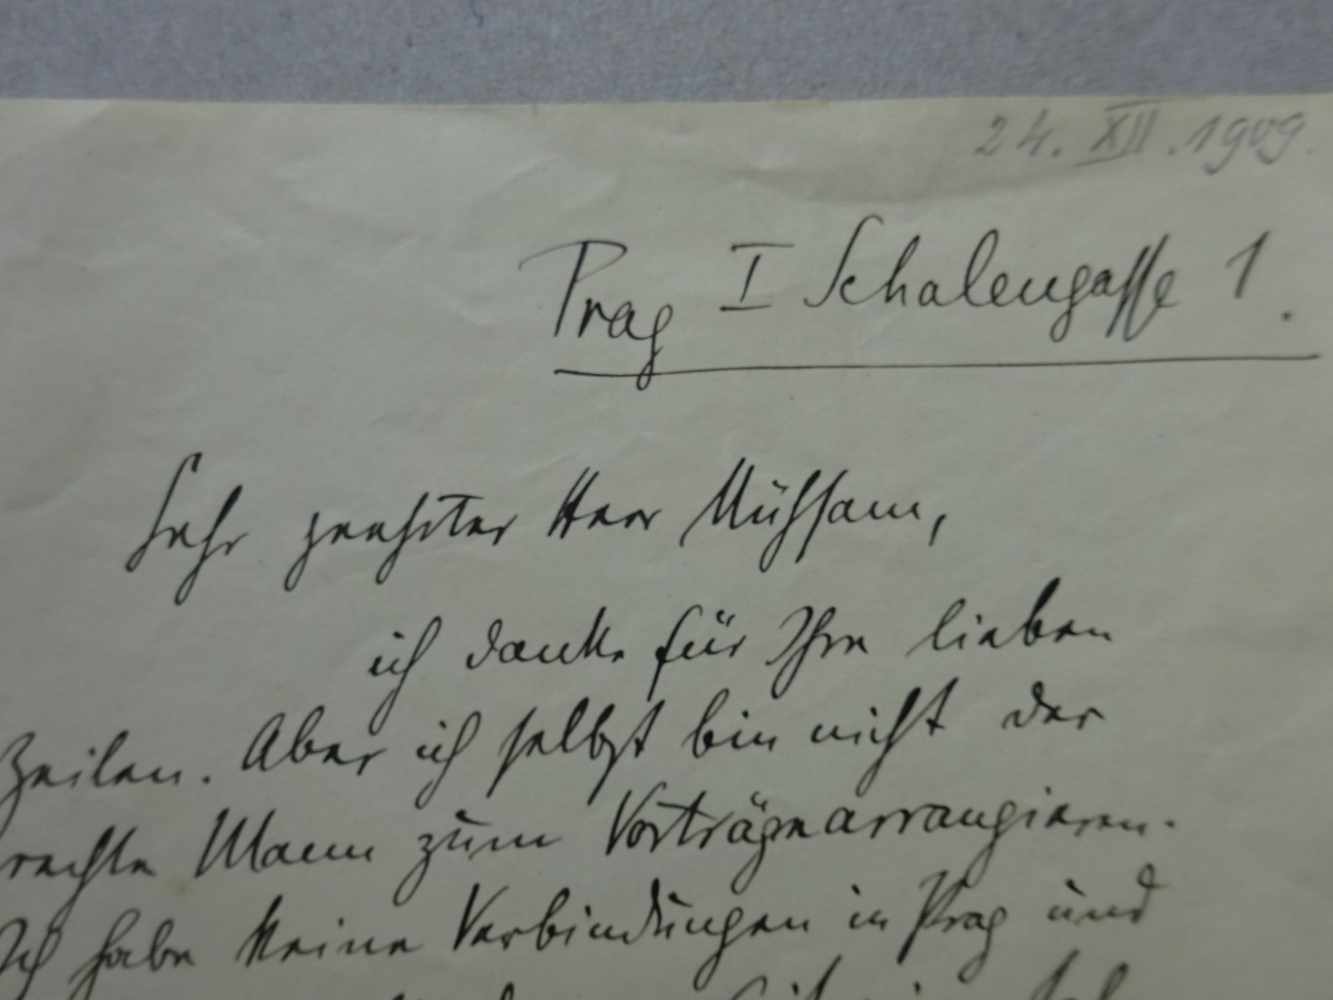 24. XII. 1909.
Prag I Schalengasse 1.
Sehr geehrter Herr Mühsam,
ich danke für Ihre lieben
Zeilen. Aber ich selbst bin nicht der
rechte Mann zum Vorträgearrangieren.
Ich habe keine Verbindungen in Prag und